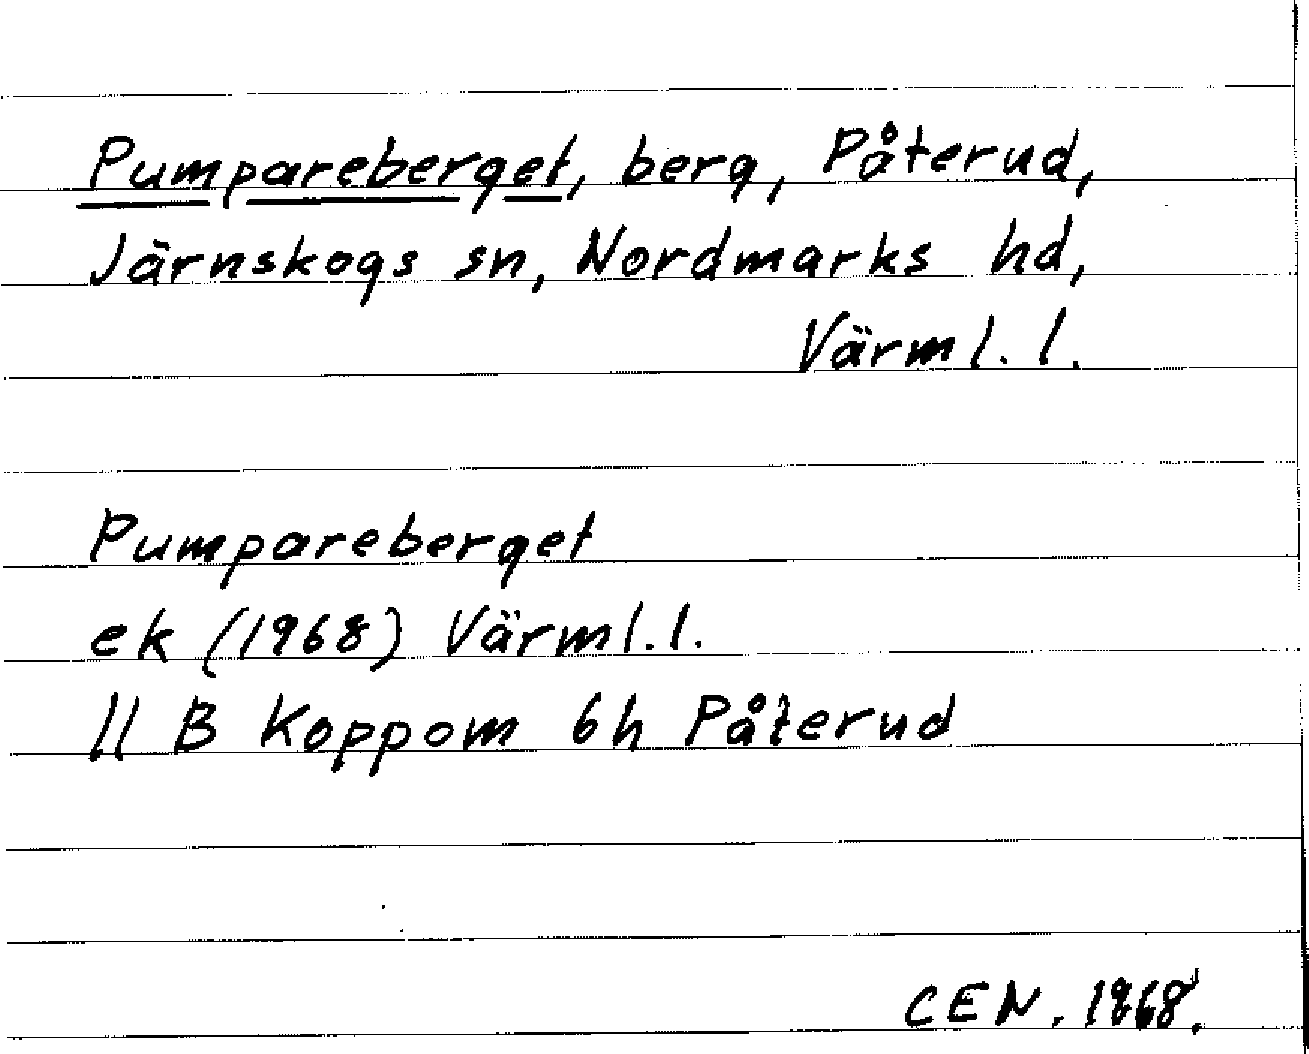 Pumpareberget, berg, Påterud,
Järnskogs sn, Nordmarks hd,
Värml. l.
Pumpareberget
ek (1968) Värml. l.
11 B Koppom 6h Påterud
CEN. 1968.